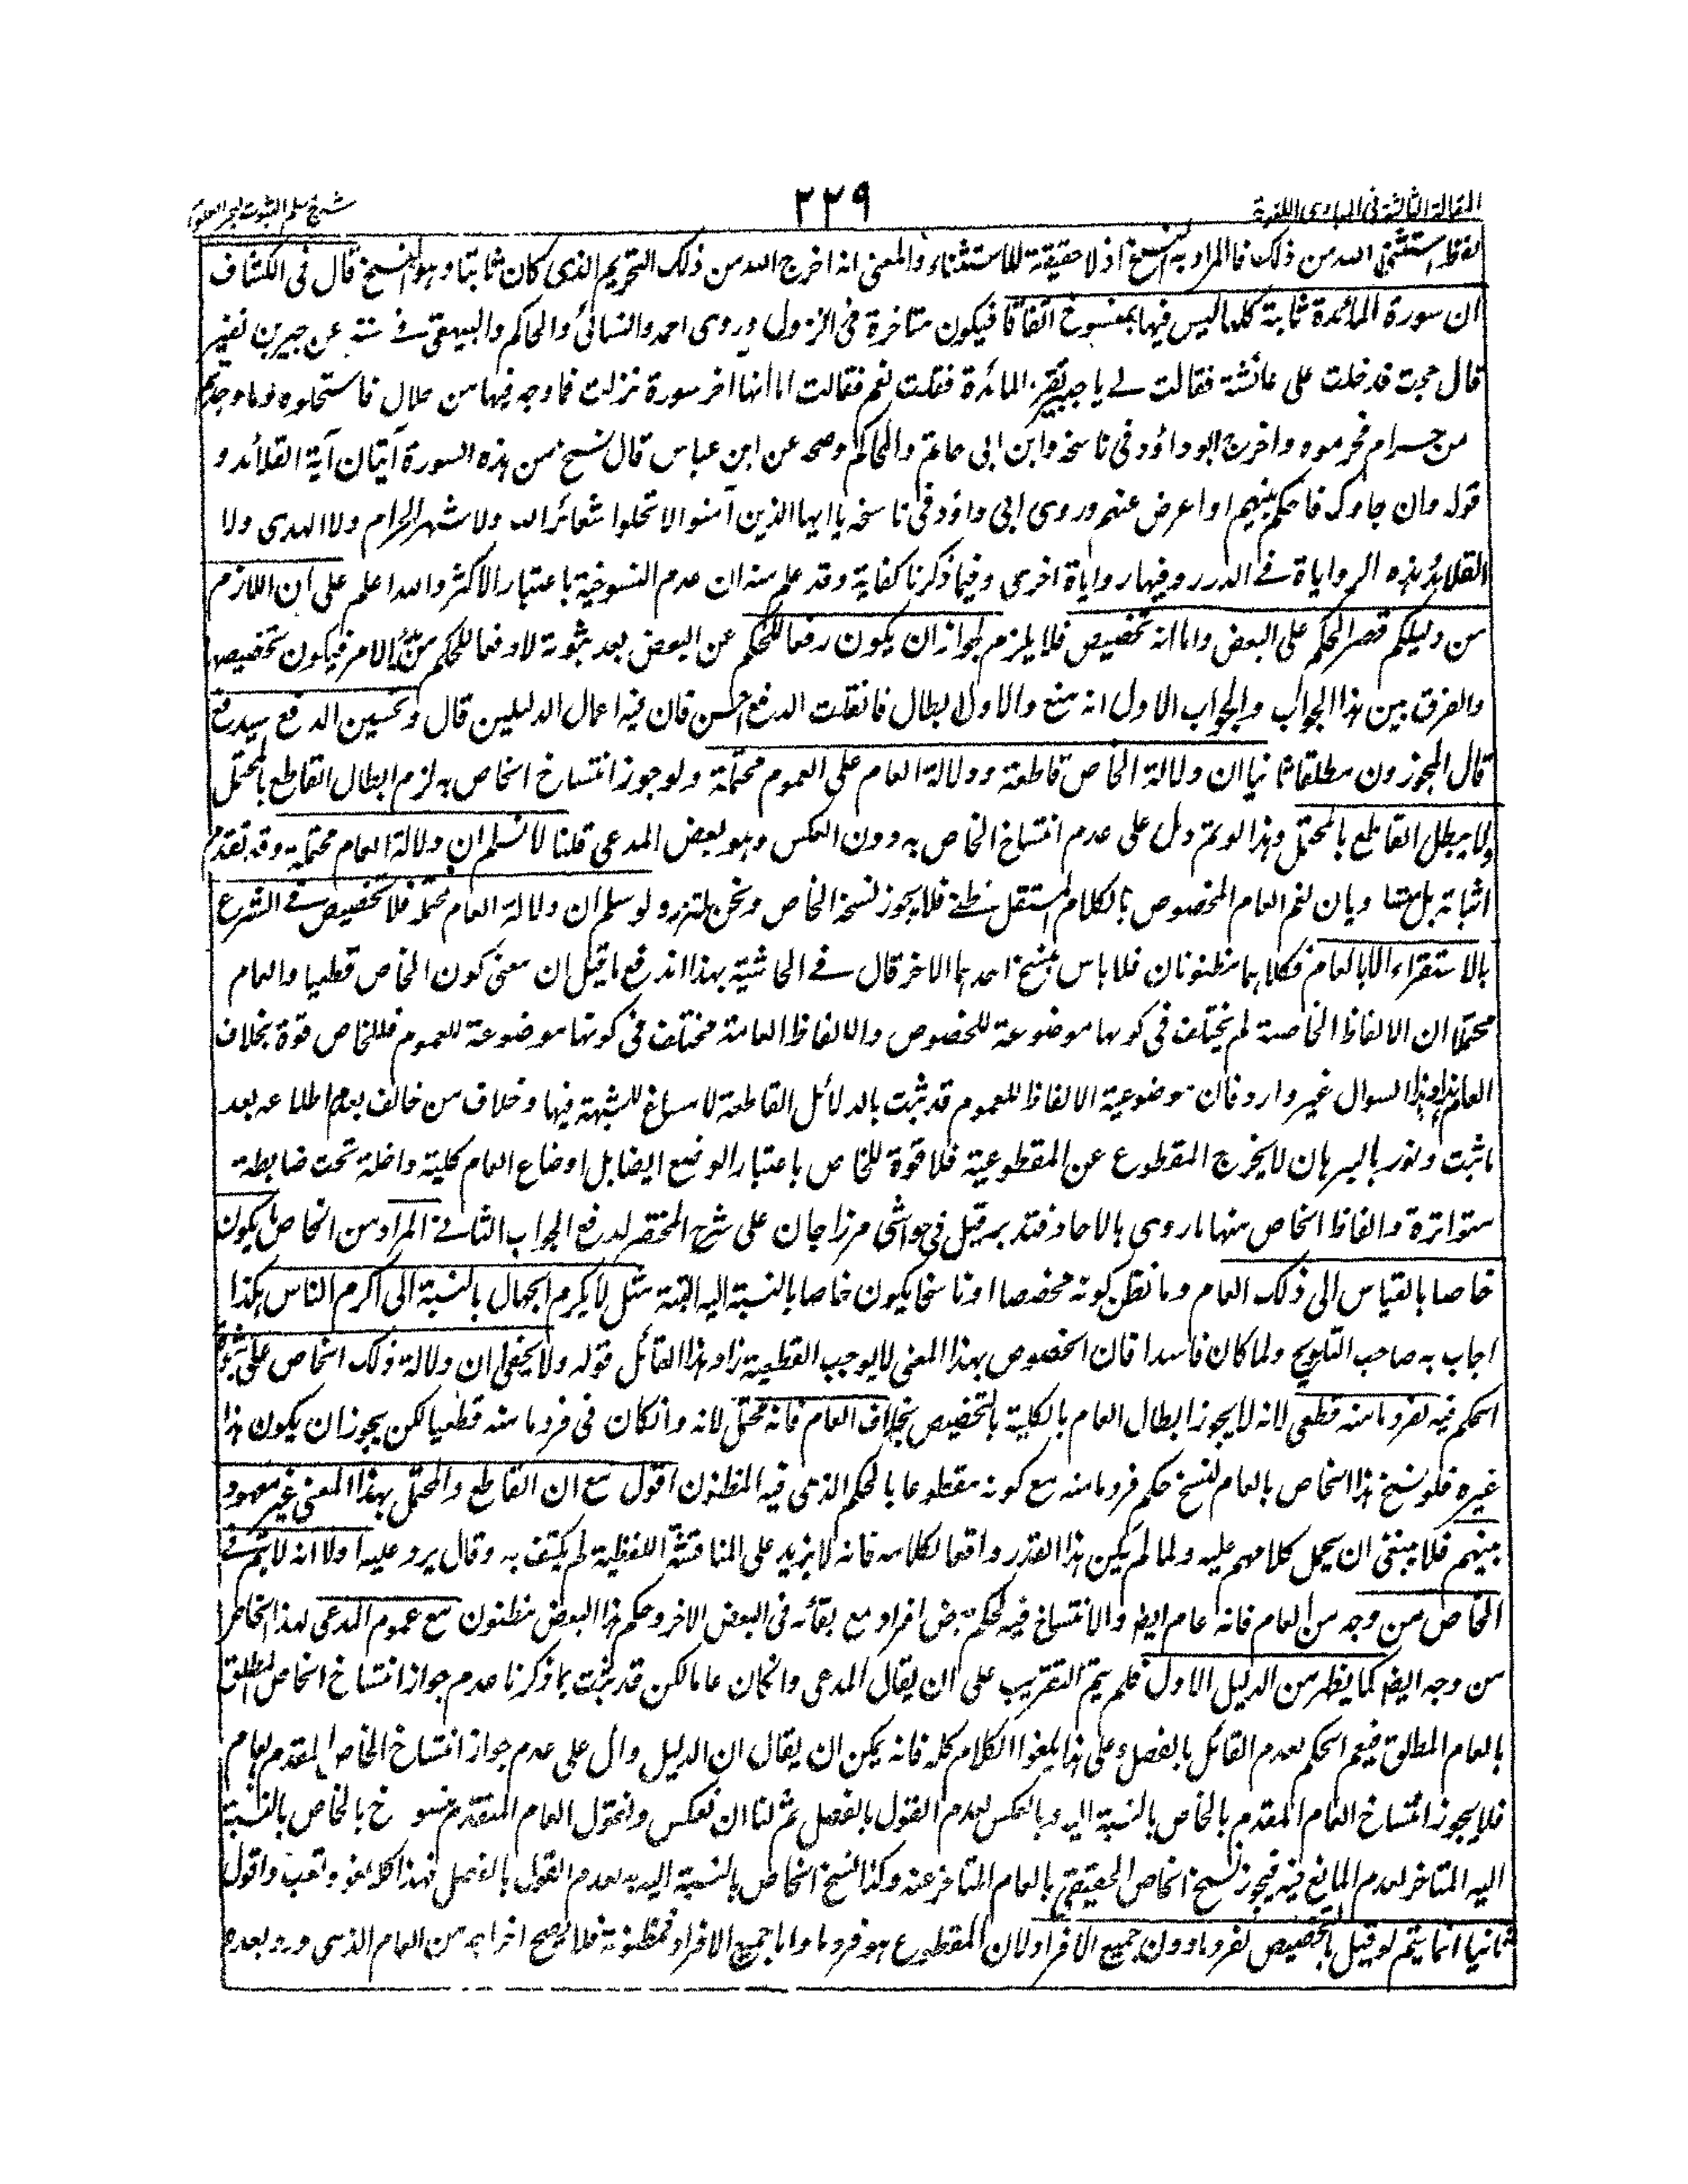 المقالة الثالثة في المبادى اللغوية
٢٢٩
شرح مسلم الثبوت لبحر العلوم
لفظ استثنى الله من ذلك فالمراد به النسخ اذ لا حقيقة للاستثناء والمعنى انه اخرج الله من ذلك التحريم الذى كان ثابتا وهو النسخ قال فى الكشاف
ان سورة المائدة ثابتة كلها ليس فيها بمنسوخ اتفاقا فيكون متاخرة فى النزول وروى احمد والنسائى والحاكم والبيهقى فى سننه عن جبير بن نفير
قال حججت فدخلت على عائشة فقالت لى يا جبير تقرء المائدة فقلت نعم فقالت اما انها اخر سورة نزلت فما وجدتم فيها من حلال فاستحلوه وما وجدتم
من حرام فحرموه واخرج ابو داؤد فى ناسخه وابن ابى حاتم والحاكم وصححه عن ابن عباس قال نسخ من هذه السورة آيتان آية القلائد و
قوله وان جاؤك فاحكم بينهم او اعرض عنهم وروى ابى داؤد فى ناسخه يا ايها الذين آمنوا لا تحلوا شعائر الله ولا شهر الحرام ولا الهدى ولا
القلايد هذه الرواياة فى الدرر وفيها رواياة اخرى وفيما ذكرنا كفاية وقد علم منه ان عدم المنسوخية باعتبار الاكثر والله اعلم على ان اللازم
من دليلكم قصر الحكم على البعض واما انه تخصيص فلا يلزم لجواز ان يكون رفعا للحكم عن البعض بعد ثبوته لا دفعا للحكم من الامر فيكون تخصيصا
والفرق بين هذا الجواب والجواب الاول انه منع والاول ابطال فانقلت الدفع احسن فان فيه اعمال الدليلين قال وتحسين الدفع سيدفع
قال المجوزون مطلقا ثانيا ان دلالة الخاص قاطعة ودلالة العام على العموم محتملة ولو جوز انتساخ الخاص به لزم ابطال القاطع بالمحتمل
ولا يبطل القاطع بالمحتمل وهذا لو تم دل على عدم انتساخ الخاص به دون العكس وهو بعض المدعى قلنا لا نسلم ان دلالة العام محتملة وقد تقدم
اثباته بل هما سيان نعم العام المخصوص بالكلام المستقل ظنى فلا يجوز نسخه الخاص ونحن نلتزمه ولو سلم ان دلالة العام محتملة فلا تخصيص فى الشرع
بالاستقراء الا بالعام فكلاهما مظنونان فلا باس بنسخ احدهما الاخر قال فى الحاشية بهذا اندفع ما قيل ان معنى كون الخاص قطعيا والعام
محتملا ان الالفاظ الخاصة لم يختلف فى كونها موضوعة للخصوص والالفاظ العامة مختلف فى كونها موضوعة للعموم فللخاص قوة بخلاف
العام هذا وهذا السوال غير وارد فان موضوعية الالفاظ للعموم قد ثبت بالدلائل القاطعة لا مساغ للشبهة فيها وخلاف من خالف بعدم اطلاعه بعد
ما ثبت ونور بالبرهان لا يخرج المقطوع عن المقطوعية فلا قوة للخاص باعتبار الوضع ايضا بل اوضاع العام كلية داخلة تحت ضابطة
متواترة والفاظ الخاص منها ما روى بالاحاد فتدبر قيل فى حواشى مرزا جان على شرح المختصر لدفع الجواب الثانى المراد من الخاص ما يكون
خاصا بالقياس الى ذلك العام وما نظن كونه مخصصا او ناسخا يكون خاصا بالنسبة اليه البتة مثل لا يكرم الجهال بالنسبة الى اكرم الناس هكذا
اجاب به صاحب التلويح ولما كان فاسدا فان الخصوص بهذا المعنى لا يوجب القطعية زاد هذا القائل قوله ولا يخفى ان دلالة ذلك الخاص على ثبوت
الحكم فيه لفرد ما منه قطعى لانه لا يجوز ابطال العام بالكلية بالتخصيص بخلاف العام فانه محتمل لانه وانكان فى فرد ما منه قطعيا لكن يجوز ان يكون هذا
غيره فلو نسخ هذا الخاص بالعام لنسخ حكم فرد ما منه مع كونه مقطوعا بالحكم الذى فيه المظنون اقول مع ان القاطع والمحتمل بهذا المعنى غير معهود
بينهم فلا ينبغى ان يحمل كلامهم عليه ولما لم يكن هذا القدر دافعا لكلامه فانه لا يزيد على المناقشة اللفظية لم يكتف به وقال يرد عليه اولا انه لا يتم فى
الخاص من وجه من العام فانه عام ايضا والانتساخ فيه لحكم بعض افراد مع بقائه فى البعض الاخر وحكم هذا البعض مظنون مع عموم المدعى لهذا الخاص
من وجه ايضا كما يظهر من الدليل الاول فلم يتم التقريب على ان يقال المدعى وانكان عاما لكن قد ثبت بما ذكرنا عدم جواز انتساخ الخاص المطلق
بالعام المطلق فيعم الحكم لعدم القائل بالفصل وعلى هذا يلغوا الكلام كله فانه يمكن ان يقال ان الدليل دال على عدم جواز انتساخ الخاص المقدم بعام
فلا يجوز انتساخ العام المقدم بالخاص بالنسبة اليه وبالعكس لعدم القول بالفصل ثم لنا ان نعكس ونقول العام المتقدم منسوخ بالخاص بالنسبة
اليه المتاخر لعدم المانع فيه فيجوز نسخ الخاص الحقيقى بالعام المتاخر عنه وكذا نسخ الخاص بالنسبة اليه به لعدم القول بالفصل فهذا كلام لغو وتعب واقول
ثانيا انما يتم لو قيل بالتخصيص لفرد ما دون جميع الافراد لان المقطوع هو فرد ما واما جميع الافراد فمظنونة فلا يصح اخراجه من العام الذى ورد بعده